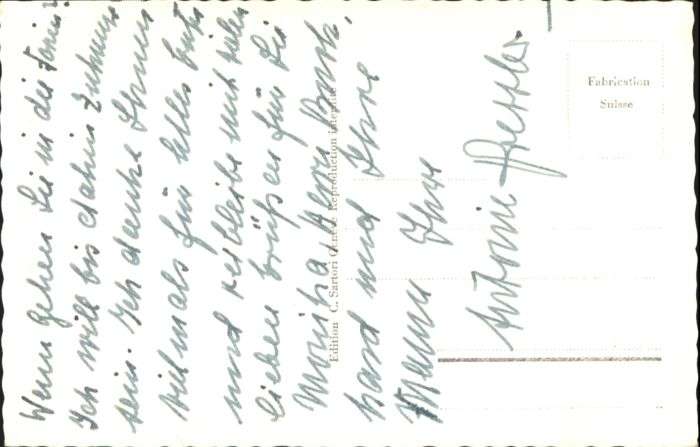 Wann gehen Sie in die Ferien?
Ich will bis dahin zuhause
sein. Ich danke Ihnen
vielmals für alles Gute
und verbleibe mit vielen
lieben Grüßen für Sie
Monika, Herr
hard und Ihre
Mama Ihre
Antonie
Edition C. Sartori Genève Reproduction interdite
Fabrication
Suisse